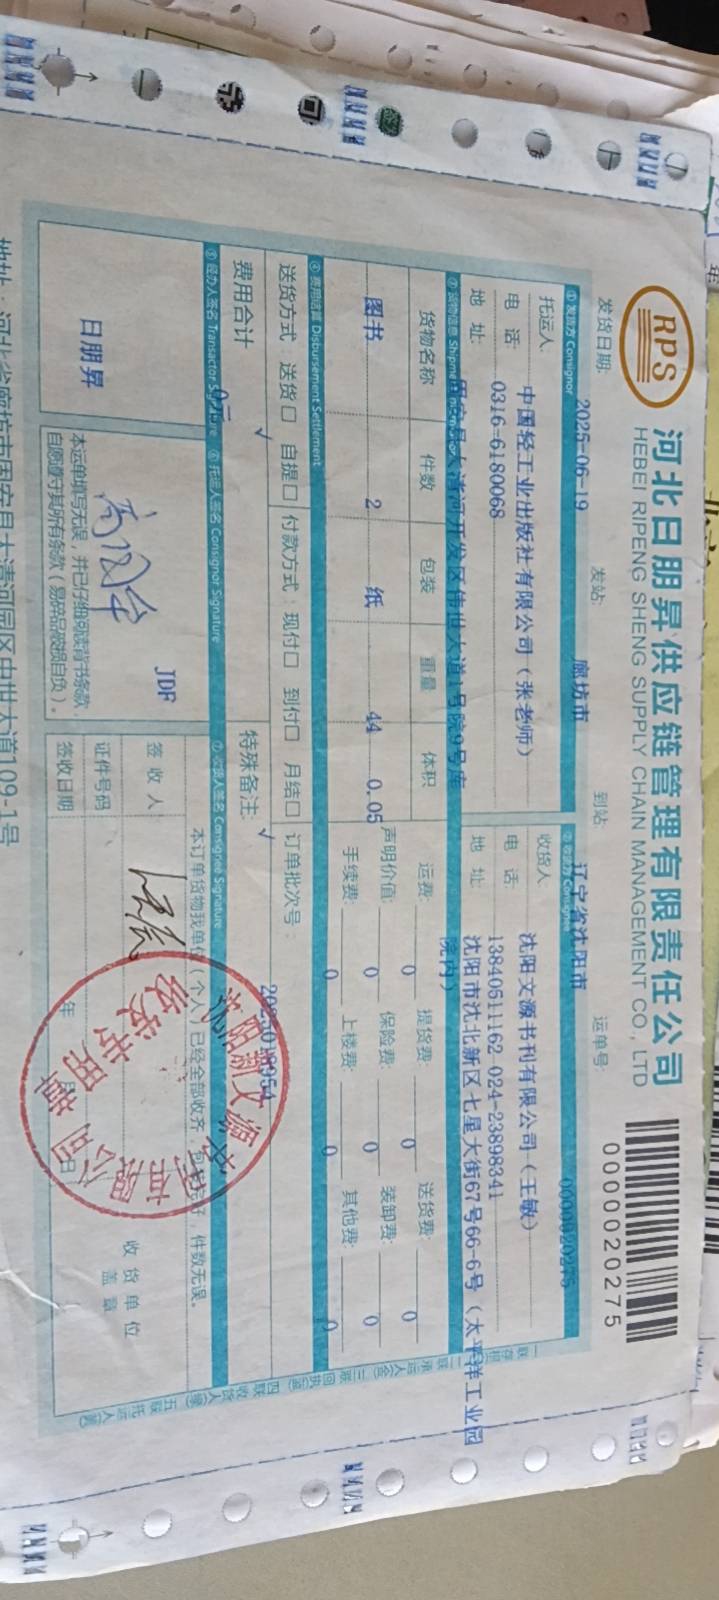 RPS
河北日朋昇供应链管理有限责任公司
HEBEI RIPENG SHENG SUPPLY CHAIN MANAGEMENT CO., LTD
0000020275
发货日期: 2025-06-19 发站: 廊坊市 到站: 辽宁省沈阳市 运单号: 0000020275
① 发货方 Consignor
托运人: 中国轻工业出版社有限公司（张老师）
电 话: 0316-6180068
地 址:
大清河开发区伟世大道1号院9号库
② 收货方 Consignee
收货人: 沈阳文源书刊有限公司（王敏）
电 话: 13840511162 024-23898341
地 址: 沈阳市沈北新区七星大街67号66-6号（太平洋工业园
院内）
③ 货物信息
货物名称 件数 包装 重量 体积
图书 2 纸 44 0.05
运费: 0 提货费: 0 送货费: 0
声明价值: 0 保险费: 0 装卸费: 0
手续费: 0 上楼费: 0 其他费: 0
④ 费用结算 Disbursement Settlement
送货方式: 送货□ 自提□ 付款方式: 现付□ 到付□ 月结□ 订单批次号:
√ √
费用合计 0元 特殊备注:
⑤ 经办人签名 Transactor Signature ⑥ 托运人签名 Consignor Signature ⑦ 收货人签名 Consignee Signature
日朋昇
JDF
本运单填写无误，并已仔细阅读背书条款，
自愿遵守其所有条款（易碎品破损自负）。
本订单货物我单位（个人）已经全部收齐，包装完好，件数无误。
签 收 人
证件号码
签收日期 年 月 日
收 货 单 位
盖 章
收发专用章
一联存根
二联承运人
三联回执
四联收货人
五联托运人
地址：河北省廊坊市固安县大清河园区中世大道109-1号